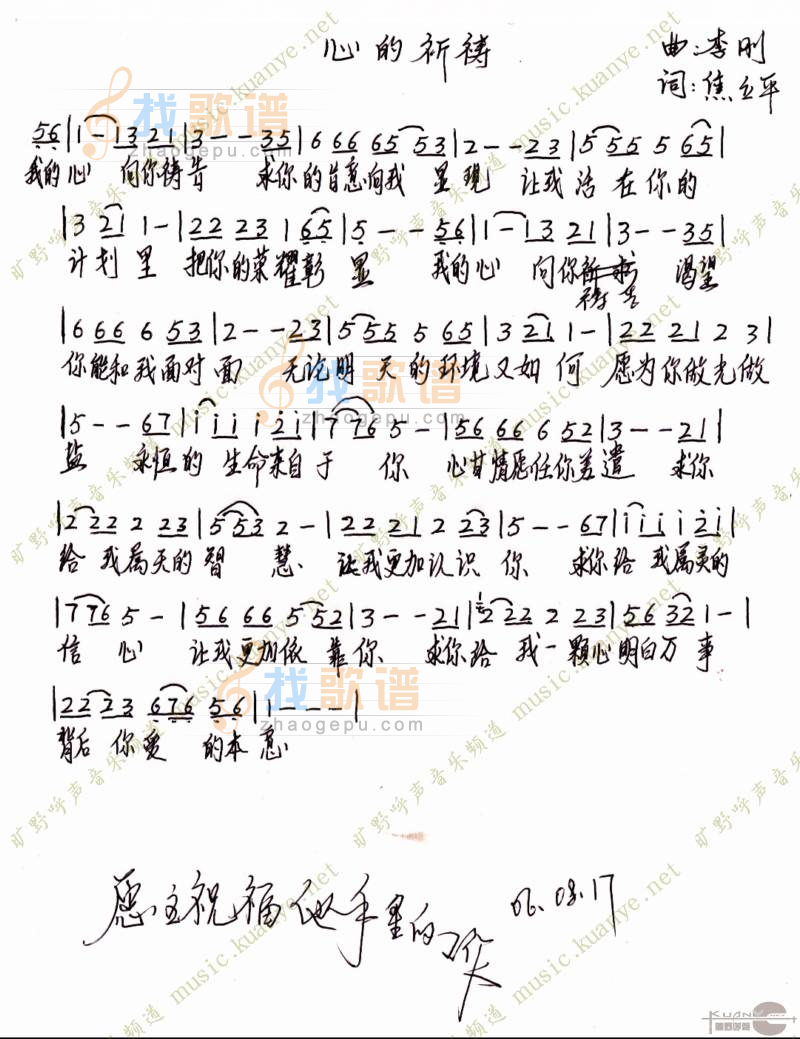 心的祈祷
曲:李刚
词:焦立平
56|1-1321|3--35|6 66 65 53|2--23|5 55 5 65|
我的心 向你祷告 求你的旨意向我 显现 让我活在你的
|3 21 1-|22 23 1 65|5--56|1-1321|3--35|
计划里 把你的荣耀彰显 我的心 向你祷告 渴望
|666 6 53|2--23|555 5 65|3 21 1-|22 21 2 3|
你能和我面对面 无论明天的环境又如何 愿为你做光做
|5--67|i i i i 2i|7 76 5-|56 66 6 52|3--21|
盐 永恒的生命来自于你 心甘情愿任你差遣 求你
|2 22 2 23|5 53 2-|22 21 2 23|5--67|i i i i 2i|
给我属天的智慧 让我更加认识你 求你给我属灵的
|7 76 5-|56 66 5 52|3--21|2 22 2 23|56 32 1-|
信心 让我更加依靠你 求你给我一颗心明白万事
|22 23 676 56|1---|
背后你爱的本意
愿主祝福他手里的
06.08.17
找歌谱
zhaogepu.com
旷野呼声音乐频道 music.kuanye.net
KUANYE
旷野呼声